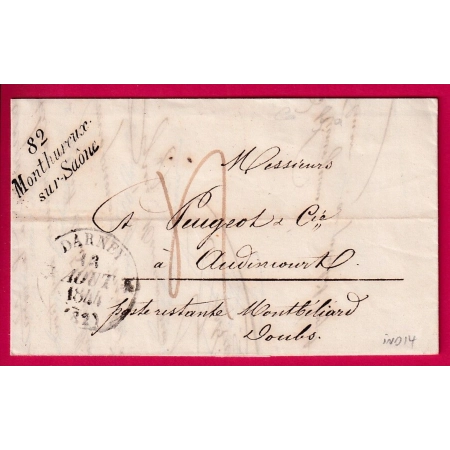 82
Monthureux-
sur-Saône
Messieurs
A Peugeot & Cie
à Audincourt.
poste restante Montbéliard
Doubs.
DARNEY
13
AOUT
1844
ind14